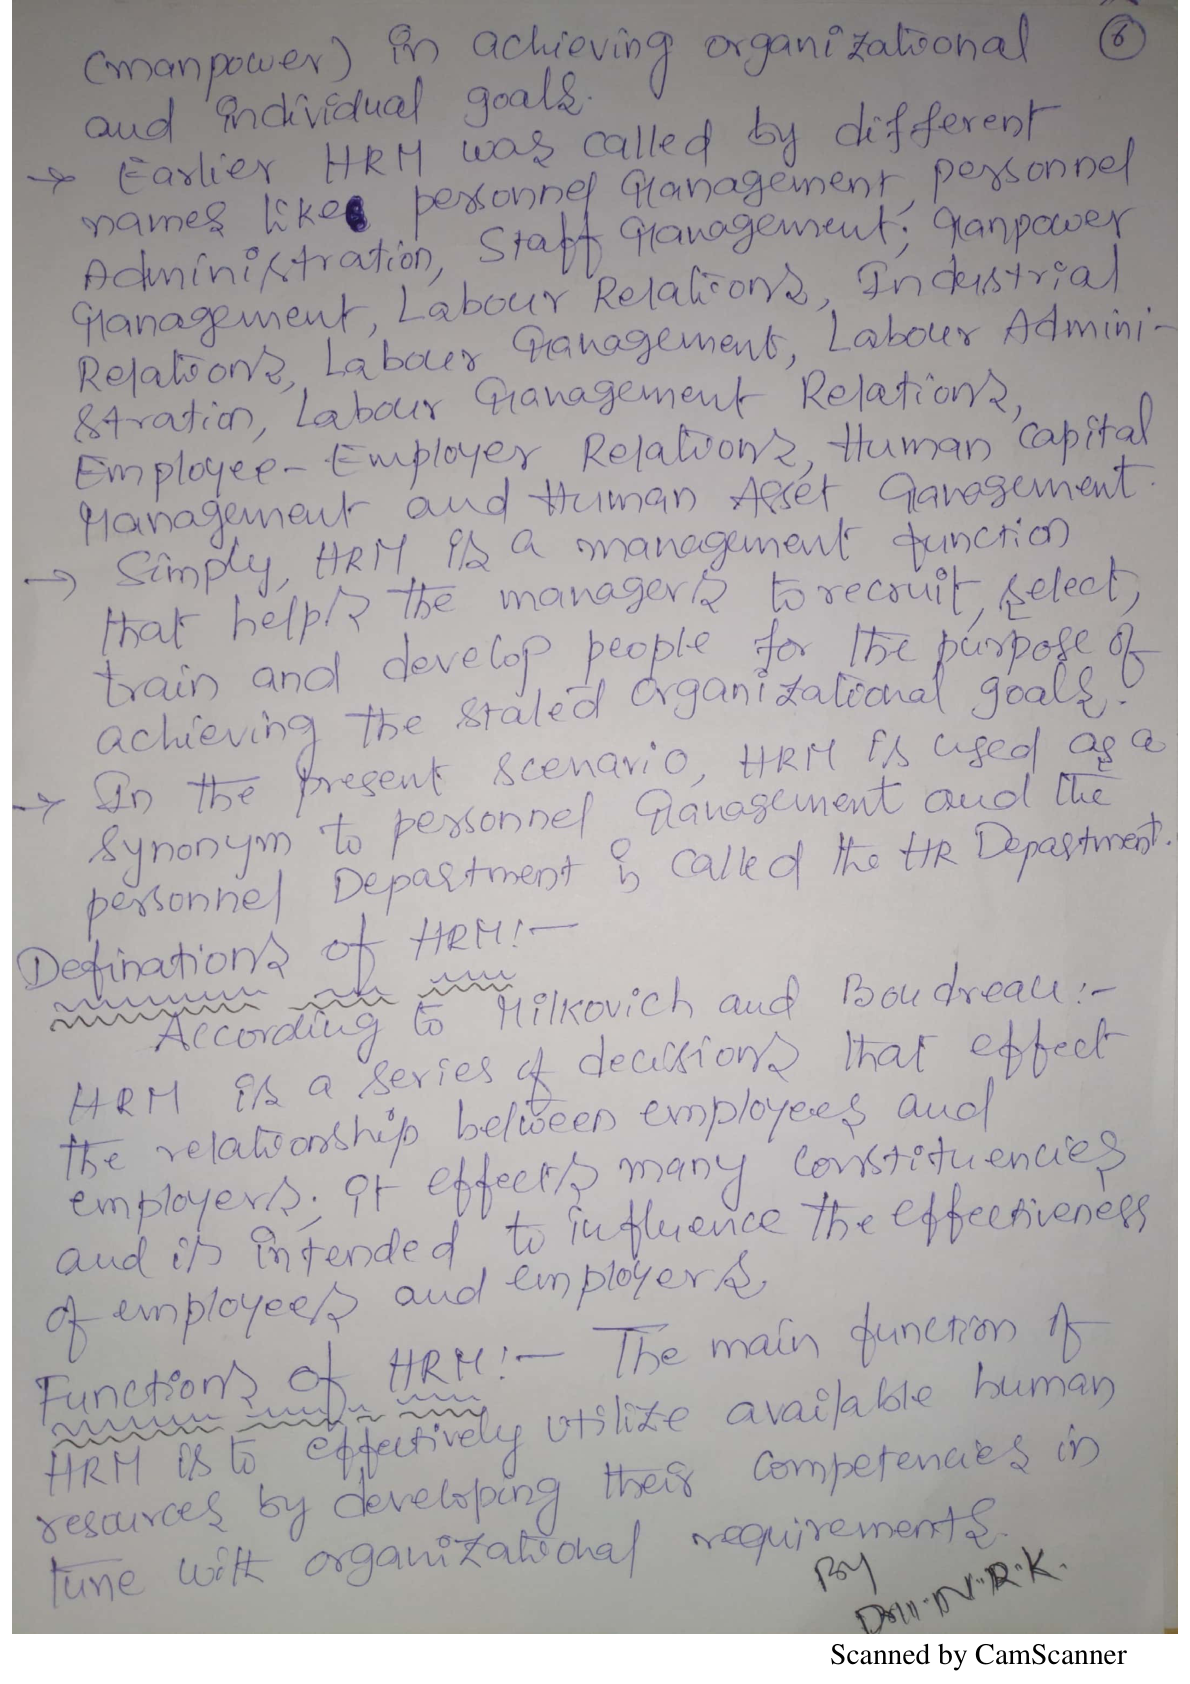 (manpower) in achieving organizational
6
and individual goals.
→ Earlier HRM was called by different
names like personnel Management, personnel
Administration, Staff Management, Manpower
Management, Labour Relations, Industrial
Relations, Labour Management, Labour Admini-
stration, Labour Management Relations,
Employee-Employer Relations, Human Capital
Management and Human Asset Management.
→ Simply, HRM is a management function
that helps the managers to recruit, select,
train and develop people for the purpose of
achieving the stated organizational goals.
→ In the present scenario, HRM is used as a
synonym to personnel Management and the
personnel Department is called the HR Department.
Definations of HRM:-
According to Milkovich and Boudreau:-
HRM is a series of decisions that effect
the relationship between employees and
employers; it effects many constituencies
and is intended to influence the effectiveness
of employees and employers,
Functions of HRM:- The main function of
HRM is to effectively utilize available human
resources by developing their competencies in
tune with organizational requirements.
By
N.R.K.
Scanned by CamScanner